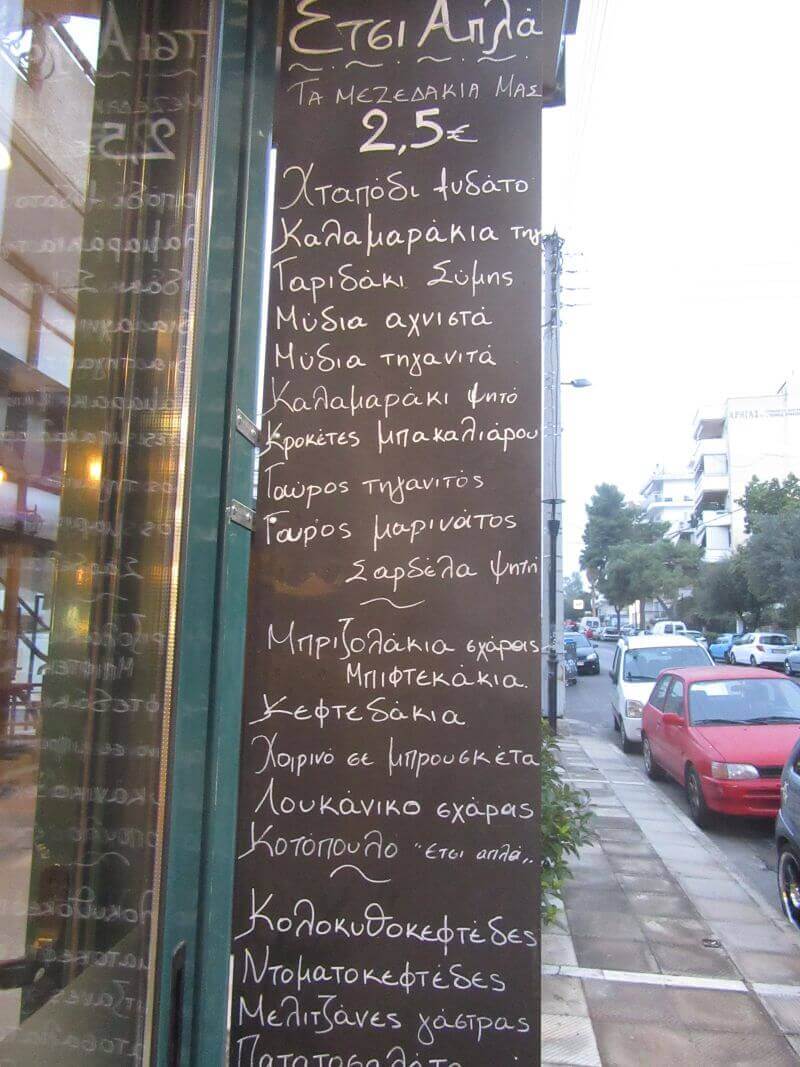 Ετσι Απλά
ΤΑ ΜΕΖΕΔΑΚΙΑ ΜΑΣ
2,5€
Χταπόδι ξυδάτο
Καλαμαράκια τηγ
Γαριδάκι Σύμης
Μύδια αχνιστά
Μύδια τηγανιτά
Καλαμαράκι ψητό
Κροκέτες μπακαλιάρου
Γαύρος τηγανιτός
Γαύρος μαρινάτος
Σαρδέλα ψητή
Μπριζολάκια σχάρας
Μπιφτεκάκια.
Κεφτεδάκια
Χοιρινό σε μπρουσκέτα
Λουκάνικο σχάρας
Κοτόπουλο "έτσι απλά"
Κολοκυθοκεφτέδες
Ντοματοκεφτέδες
Μελιτζάνες γάστρας
Πατατοσαλάτα